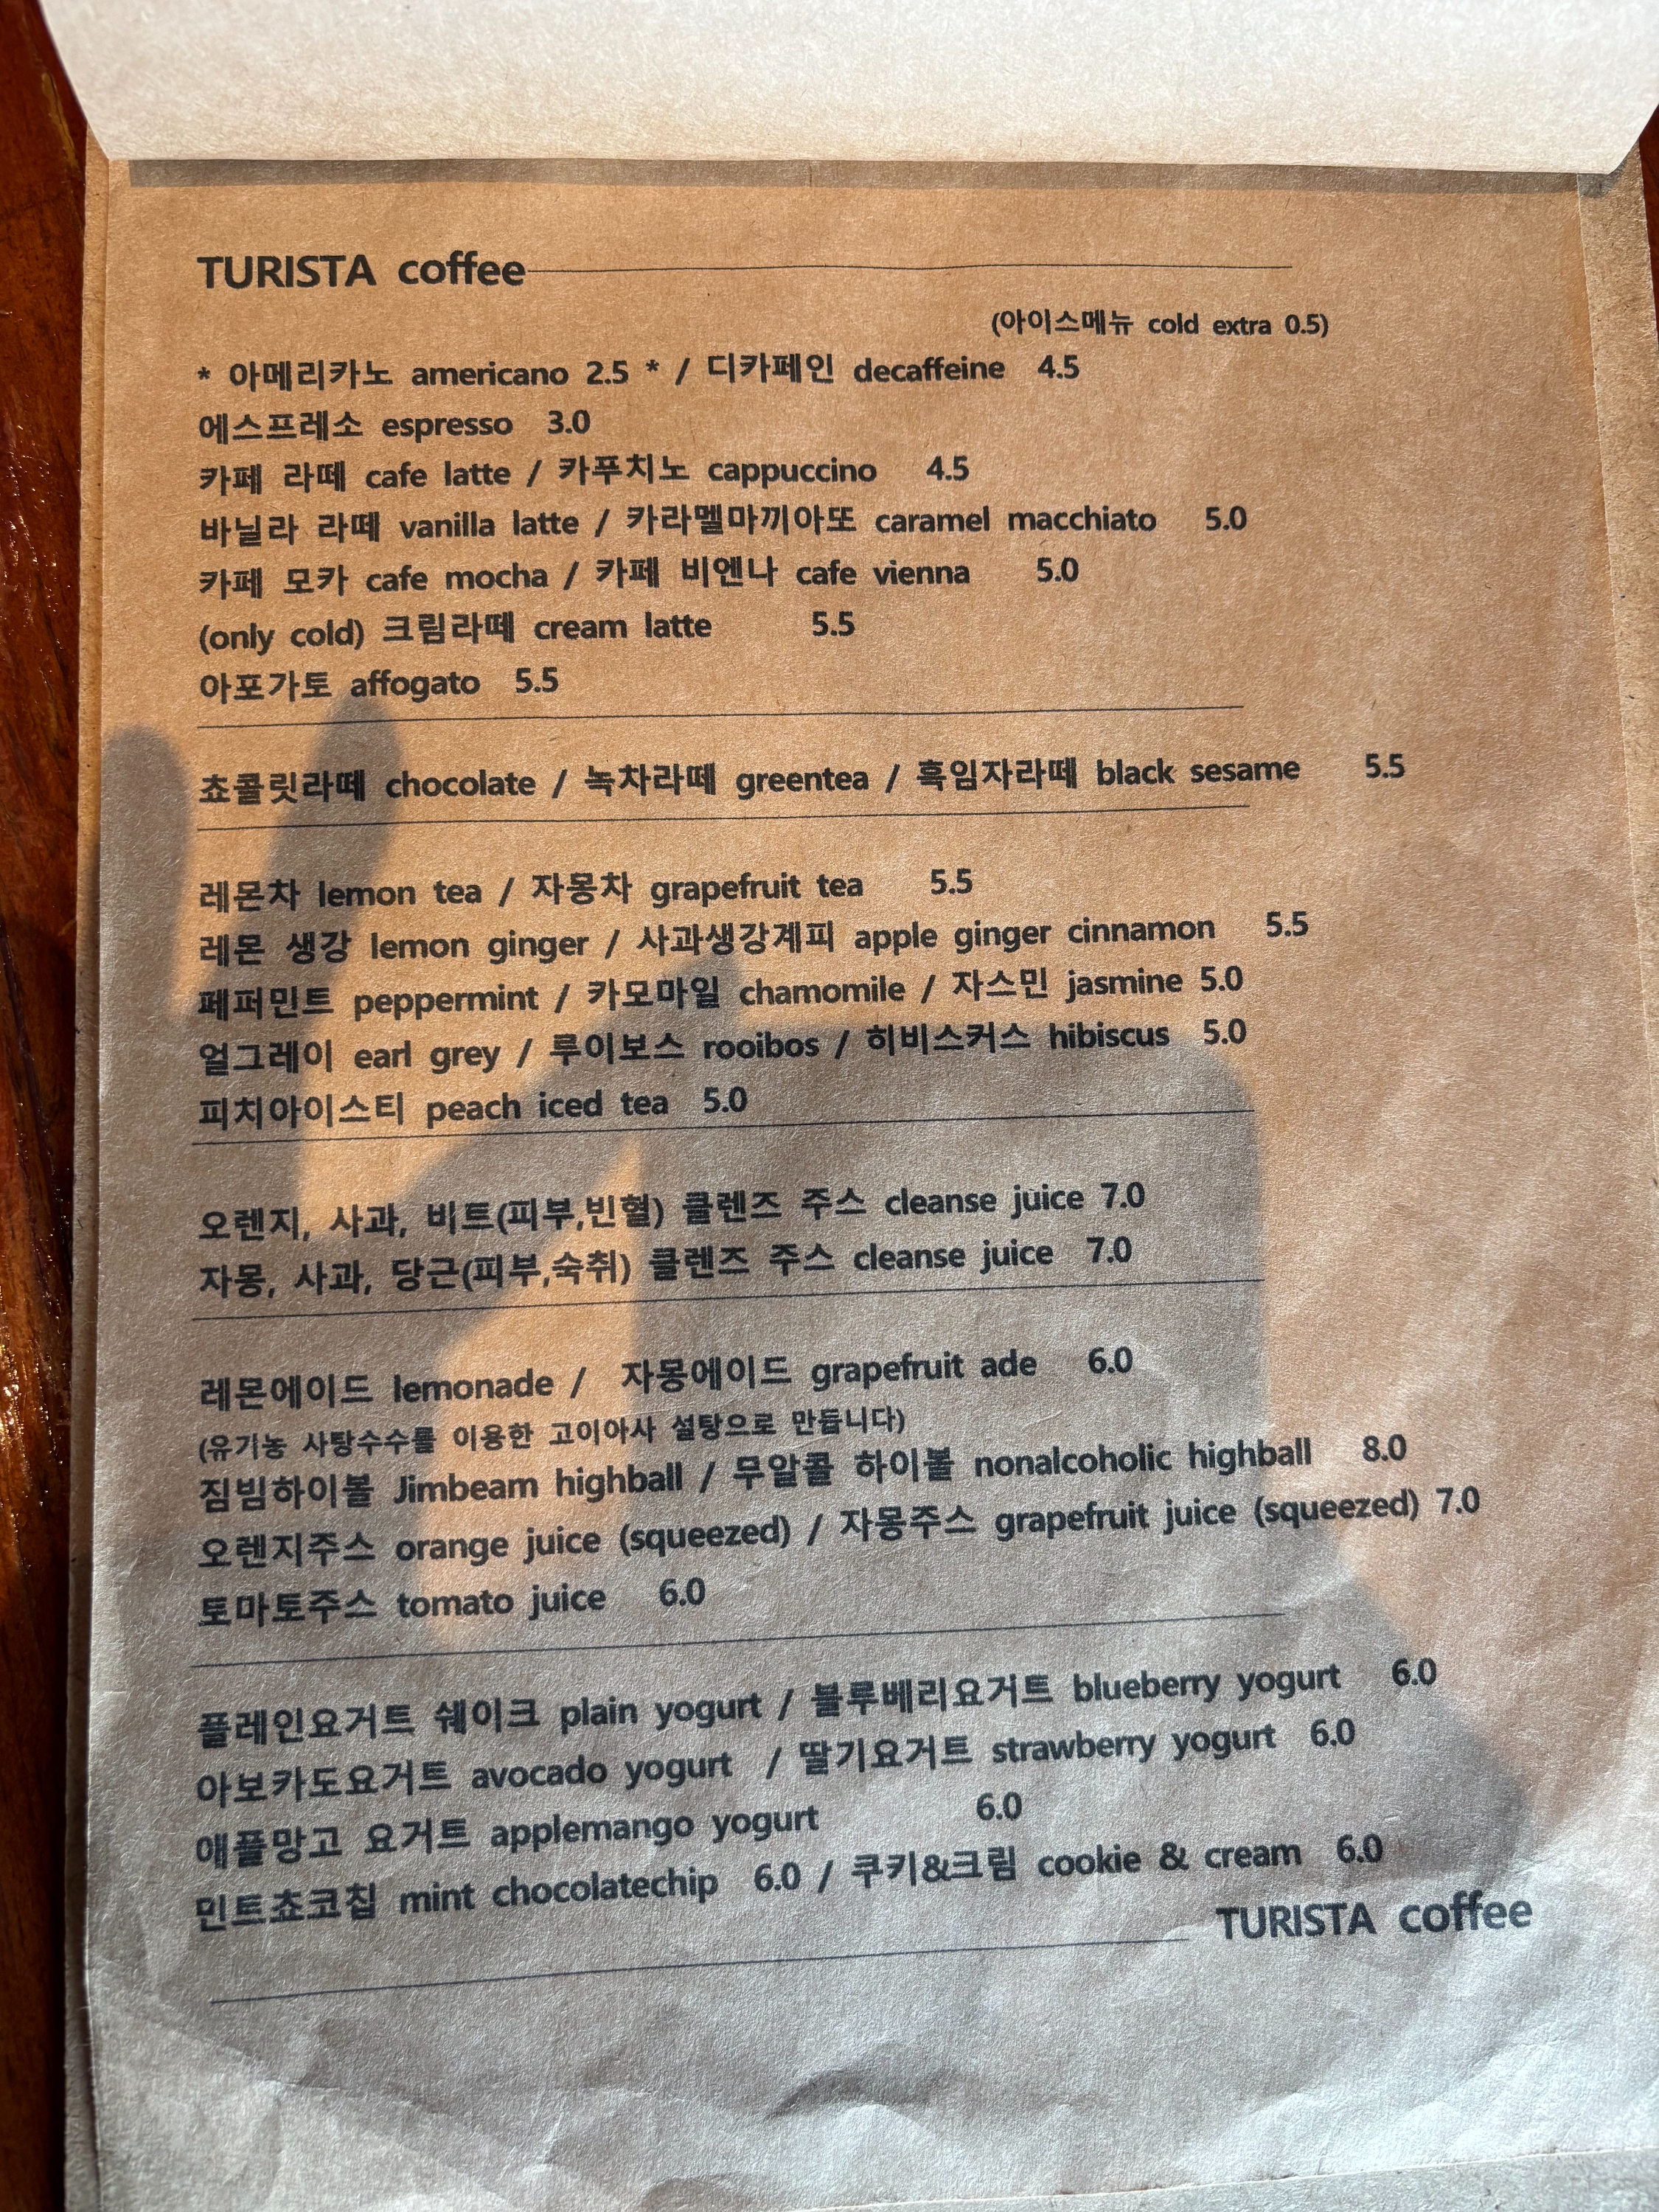 TURISTA coffee
(아이스메뉴 cold extra 0.5)
* 아메리카노 americano 2.5 * / 디카페인 decaffeine 4.5
에스프레소 espresso 3.0
카페 라떼 cafe latte / 카푸치노 cappuccino 4.5
바닐라 라떼 vanilla latte / 카라멜마끼아또 caramel macchiato 5.0
카페 모카 cafe mocha / 카페 비엔나 cafe vienna 5.0
(only cold) 크림라떼 cream latte 5.5
아포가토 affogato 5.5
쵸콜릿라떼 chocolate / 녹차라떼 greentea / 흑임자라떼 black sesame 5.5
레몬차 lemon tea / 자몽차 grapefruit tea 5.5
레몬 생강 lemon ginger / 사과생강계피 apple ginger cinnamon 5.5
페퍼민트 peppermint / 카모마일 chamomile / 자스민 jasmine 5.0
얼그레이 earl grey / 루이보스 rooibos / 히비스커스 hibiscus 5.0
피치아이스티 peach iced tea 5.0
오렌지, 사과, 비트(피부,빈혈) 클렌즈 주스 cleanse juice 7.0
자몽, 사과, 당근(피부,숙취) 클렌즈 주스 cleanse juice 7.0
레몬에이드 lemonade / 자몽에이드 grapefruit ade 6.0
(유기농 사탕수수를 이용한 고이아사 설탕으로 만듭니다)
짐빔하이볼 Jimbeam highball / 무알콜 하이볼 nonalcoholic highball 8.0
오렌지주스 orange juice (squeezed) / 자몽주스 grapefruit juice (squeezed) 7.0
토마토주스 tomato juice 6.0
플레인요거트 쉐이크 plain yogurt / 블루베리요거트 blueberry yogurt 6.0
아보카도요거트 avocado yogurt / 딸기요거트 strawberry yogurt 6.0
애플망고 요거트 applemango yogurt 6.0
민트쵸코칩 mint chocolatechip 6.0 / 쿠키&크림 cookie & cream 6.0
TURISTA coffee